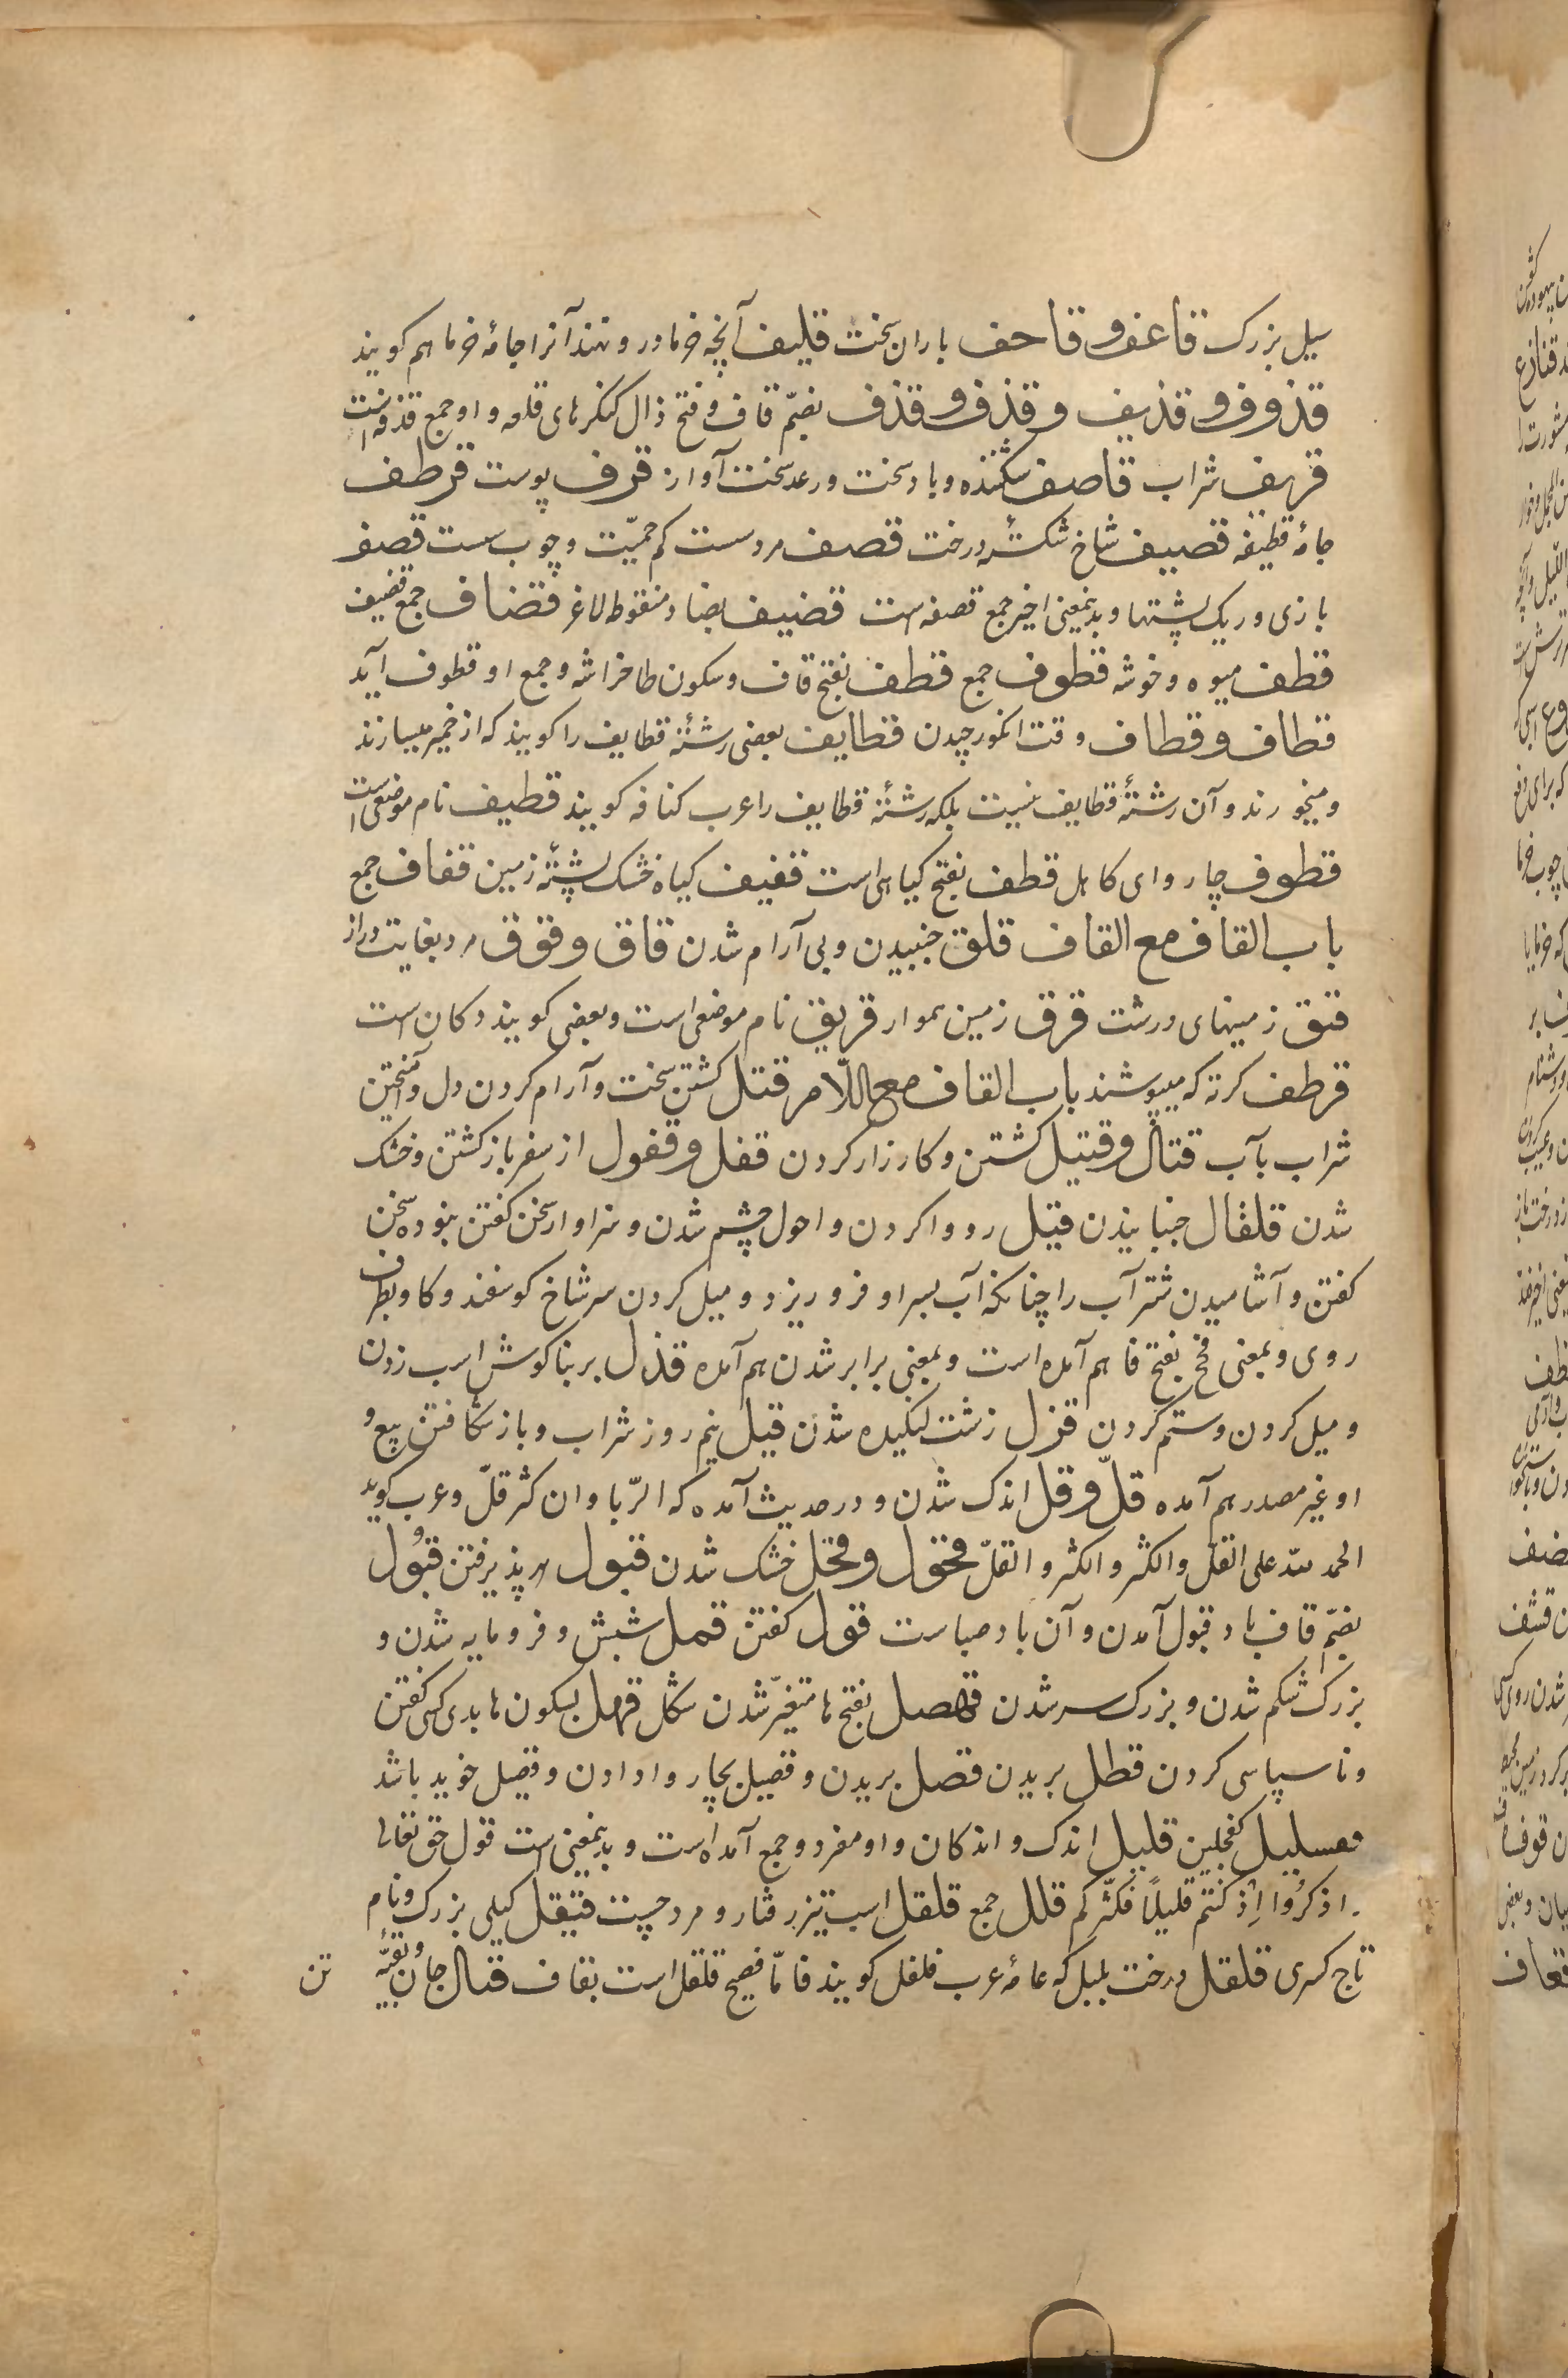 سیل بزرک قاعف و قاحف باران سخت قلیف آنچه خرما در و نهند آنرا جامۀ خرما هم کویند
قذوف و قذیف و قذف و قذف بضمّ قاف و فتح ذال کنکرهای قلعه و او جمع قذفه است
قرهف شراب قاصف شکننده و باد سخت و رعد سخت آواز قرف پوست قرطف
جامۀ قطیفه قصیف شاخ شکستۀ درخت قصف مرد سست کم حمیّت و چوب سست قصف
بازی و ریک پشتها و بدینمعنی اخیر جمع قصفه است قضیف بضاد منقوطه لاغر قضاف جمع قضیف
قطف میوه و خوشه قطوف جمع قطف بفتح قاف و سکون طا خراشه و جمع او قطوف آید
قطاف و قطاف وقت انکور چیدن قطایف بعضی رشتۀ قطایف را کویند که از خمیر میسازند
و میخورند و آن رشتۀ قطایف نیست بلکه رشتۀ قطایف را عرب کنافه کویند قطیف نام موضعی است
قطوف چاروای کاهل قطف بفتح کیاهی است قفیف کیاه خشک پشتۀ زمین قفاف جمع
باب القاف مع القاف قلق جنبیدن و بی آرام شدن قاق و قوق مرد بغایت دراز
قیق زمینهای درشت قرق زمین هموار قریق نام موضعی است و بعضی کویند دکان است
قرطف کرته که میپوشند باب القاف مع اللّام قتل کشتن سخت و آرام کردن دل و آمیختن
شراب بآب قتال و قتیل کشتن و کارزار کردن قفل و قفول از سفر باز کشتن و خشک
شدن قلقال جنبانیدن قبل رو وا کردن و احول چشم شدن و سزاوار سخن کفتن نبوده سخن
کفتن و آشامیدن شتر آب را چنانکه آب بسر او فرو ریزد و میل کردن سر شاخ کوسفند و کاو بطرف
روی و بمعنی فحج بفتح فا هم آمده است و بمعنی برابر شدن هم آمده قذل بر بناکوش اسب زدن
و میل کردن و ستم کردن قزل زشت لنکیده شدن قیل نیم روز شراب و باز شکافتن بیع و
او غیر مصدر هم آمده قلّ و قل اندک شدن و در حدیث آمده که الرّبا و ان کثر قلّ و عرب کوید
الحمد للّه علی القلّ و الکثر و الکثر و القلّ قحول و قحل خشک شدن قبول پذیرفتن قبول
بضمّ قاف باد قبول آمدن و آن باد صباست قول کفتن قمل شپش و فرومایه شدن و
بزرک شکم شدن و بزرک سر شدن قهل بفتح ها متغیّر شدن شکل قهل بسکون ها بدی کسی کفتن
و ناسپاسی کردن قطل بریدن قصل بریدن و قصیل بچاروا دادن و قصیل خوید باشد
قفسلیل کفچلین قلیل اندک و اندکان و او مفرد و جمع آمده است و بدینمعنی است قول حق تعالی
اذکروا اِذ کنتم قلیلاً فکثّرکم قلل جمع قلقل اسب تیز رفتار و مرد چست قیقل کیلی بزرک و نام
تاج کسری قلقل درخت بلبل که عامۀ عرب فلفل کویند فامّا فصیح قلقل است بقاف قتال جان و بقیّۀ تن